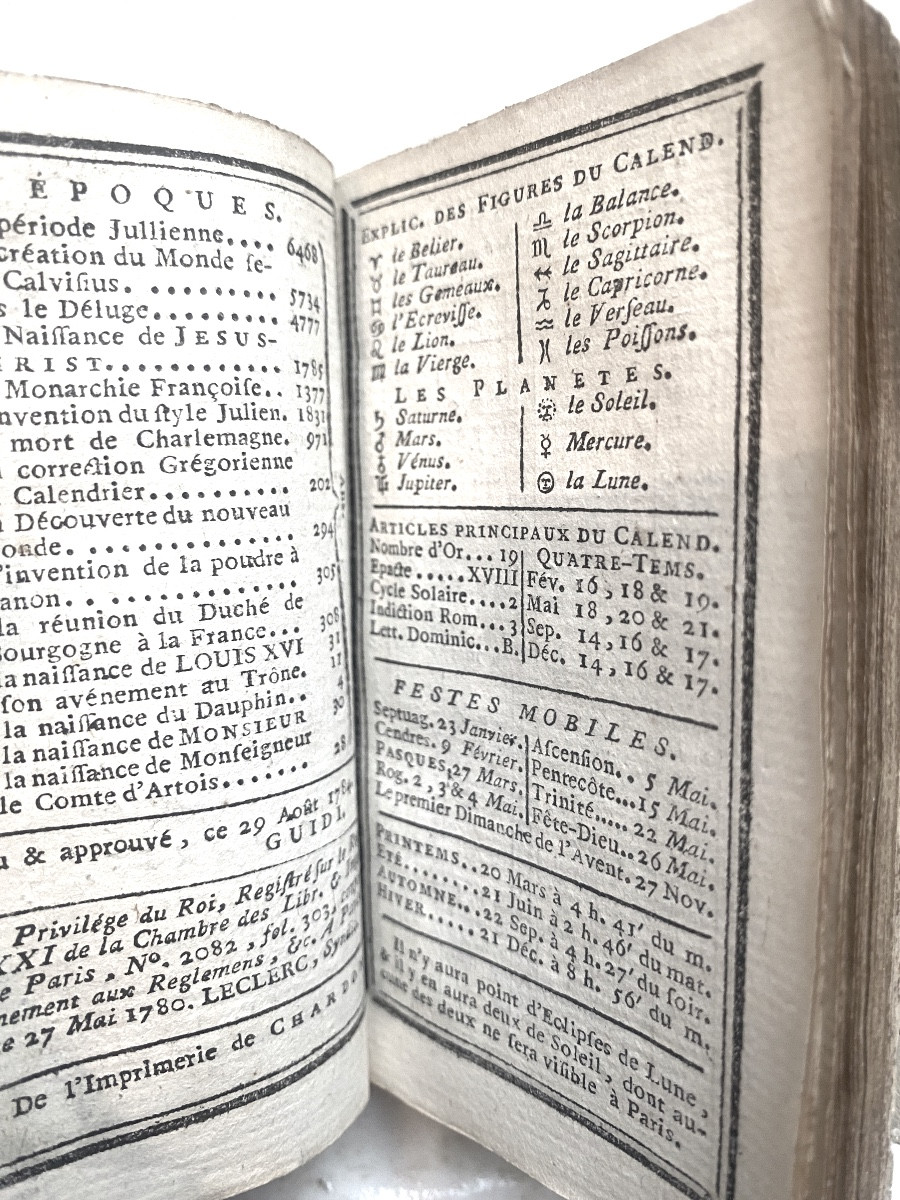 ÉPOQUES.
période Jullienne.... 6468
création du Monde ſe-
Calviſius. .......... 5734
le Déluge......... 4777
Naiſſance de JESUS-
RIST............. 1785
Monarchie Françoiſe.. 1377
nvention du ſtyle Julien. 1831
mort de Charlemagne. 971
correction Grégorienne
Calendrier.......... 202
Découverte du nouveau
onde. .............. 294
'invention de la poudre à
anon. . ............ 305
la réunion du Duché de
Bourgogne à la France... 308
la naiſſance de LOUIS XVI 31
ſon avénement au Trône. 11
la naiſſance du Dauphin.. 4
la naiſſance de MONSIEUR 30
la naiſſance de Monſeigneur
le Comte d'Artois....... 28
& approuvé, ce 29 Août 1784
GUIDI.
Privilége du Roi, Regiſtré ſur le
XXI de la Chambre des Libr. &
Paris, No. 2082, fol. 303,
nement aux Reglemens, &c. A
27 Mai 1780. LECLERC, Syndic
De l'Imprimerie de CHARDO
EXPLIC. DES FIGURES DU CALEND.
♈ le Belier.
♉ le Taureau.
♊ les Gemeaux.
♋ l'Ecreviſſe.
♌ le Lion.
♍ la Vierge.
♎ la Balance.
♏ le Scorpion.
♐ le Sagittaire.
♑ le Capricorne.
♒ le Verſeau.
♓ les Poiſſons.
LES PLANETES.
♄ Saturne.
♂ Mars.
♀ Vénus.
♃ Jupiter.
le Soleil.
☿ Mercure.
la Lune.
ARTICLES PRINCIPAUX DU CALEND.
Nombre d'Or... 19
Epacte.....XVIII
Cycle Solaire....2
Indiction Rom...3
Lett. Dominic...B.
QUATRE-TEMS.
Fév. 16, 18 & 19.
Mai 18, 20 & 21.
Sep. 14, 16 & 17.
Déc. 14, 16 & 17.
FESTES MOBILES.
Septuag. 23 Janvier.
Cendres. 9 Février.
PASQUES, 27 Mars.
Rog. 2, 3 & 4 Mai.
Aſcenſion.. 5 Mai.
Pentecôte...15 Mai.
Trinité..... 22 Mai.
Fête-Dieu.. 26 Mai.
Le premier Dimanche de l'Avent. 27 Nov.
PRINTEMS..20 Mars à 4 h. 41' du m.
ETÉ.........21 Juin à 2 h. 46' du mat.
AUTOMNE...22 Sep. à 4 h. 27' du ſoir.
HIVER......21 Déc. à 8 h. 56' du m.
Il n'y aura point d'Eclipſes de Lune,
& il y en aura deux de Soleil, dont au-
cune des deux ne ſera viſible à Paris.